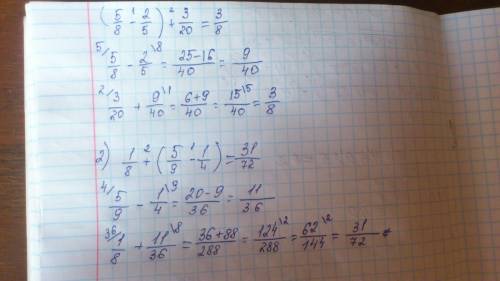 (5/8 -¹ 2/5) +² 3/20 = 3/8
⁵/ 5/8 - 2/5 \⁸ = 25-16/40 = 9/40
²/ 3/20 + 9/40 \¹ = 6+9/40 = 15/40 \⁵ = 3/8
2) 1/8 +² (5/9 -¹ 1/4) = 31/72
⁴/ 5/9 - 1/4 \⁹ = 20-9/36 = 11/36
³⁶/ 1/8 + 11/36 \⁸ = 36+88/288 = 124/288 \² = 62/144 \² = 31/72